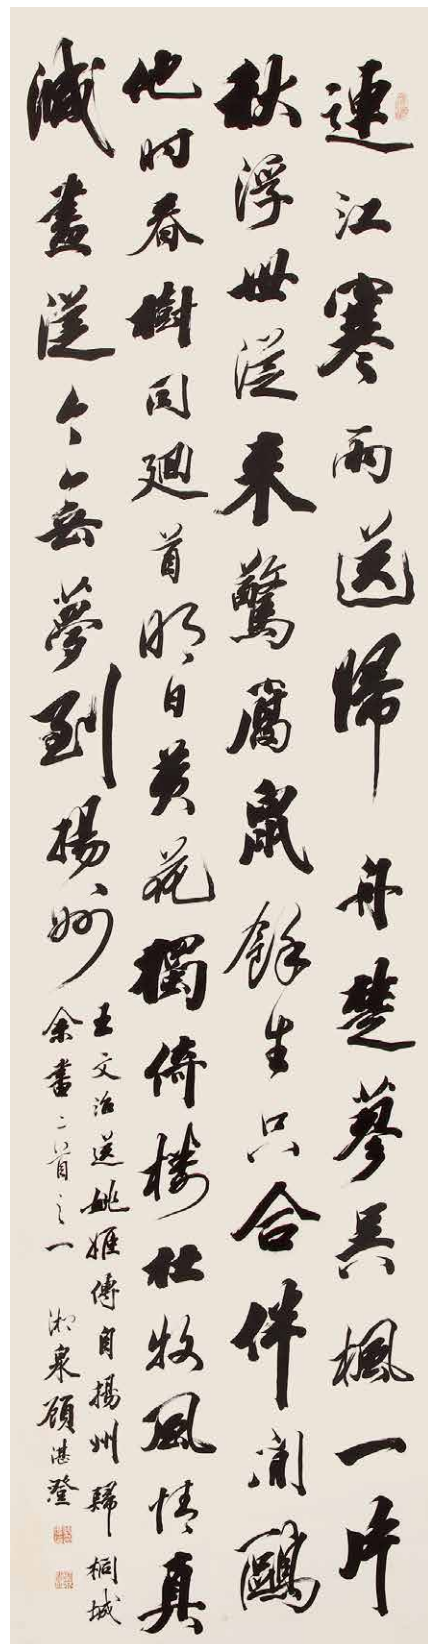 連江寒雨送歸舟楚蓼吳楓一片
秋浮世從来驚腐鼠餘生只合伴閑鷗
他時春樹同迴首明日黄花獨倚樓杜牧風情真
減盡從今無夢到揚州
王文治送姚姬傳自揚州歸桐城
余書二首之一 湘泉顧湛澄